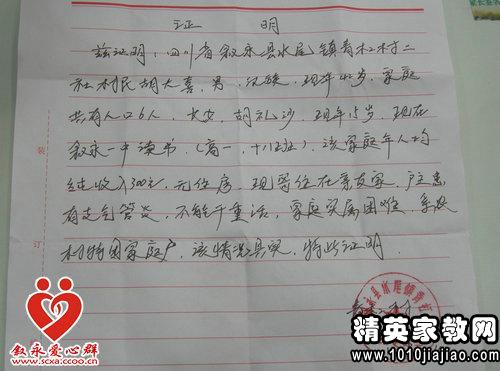 证 明
兹证明：四川省叙永县水尾镇青杠村二
社村民胡大喜，男，汉族，现年42岁，家庭
共有人口6人，长女，胡礼沙，现年15岁，现在
叙永一中读书（高一，十八班），该家庭年人均
纯收入300元，无住房，现寄住在亲友家，户主患
有支气管炎，不能干重活，家庭实属困难，系我
村特困家庭户，该情况具实，特此证明。
装
订
叙永爱心群
www.scxa.ccoo.cn
精英家教网
www.1010jiajiao.com